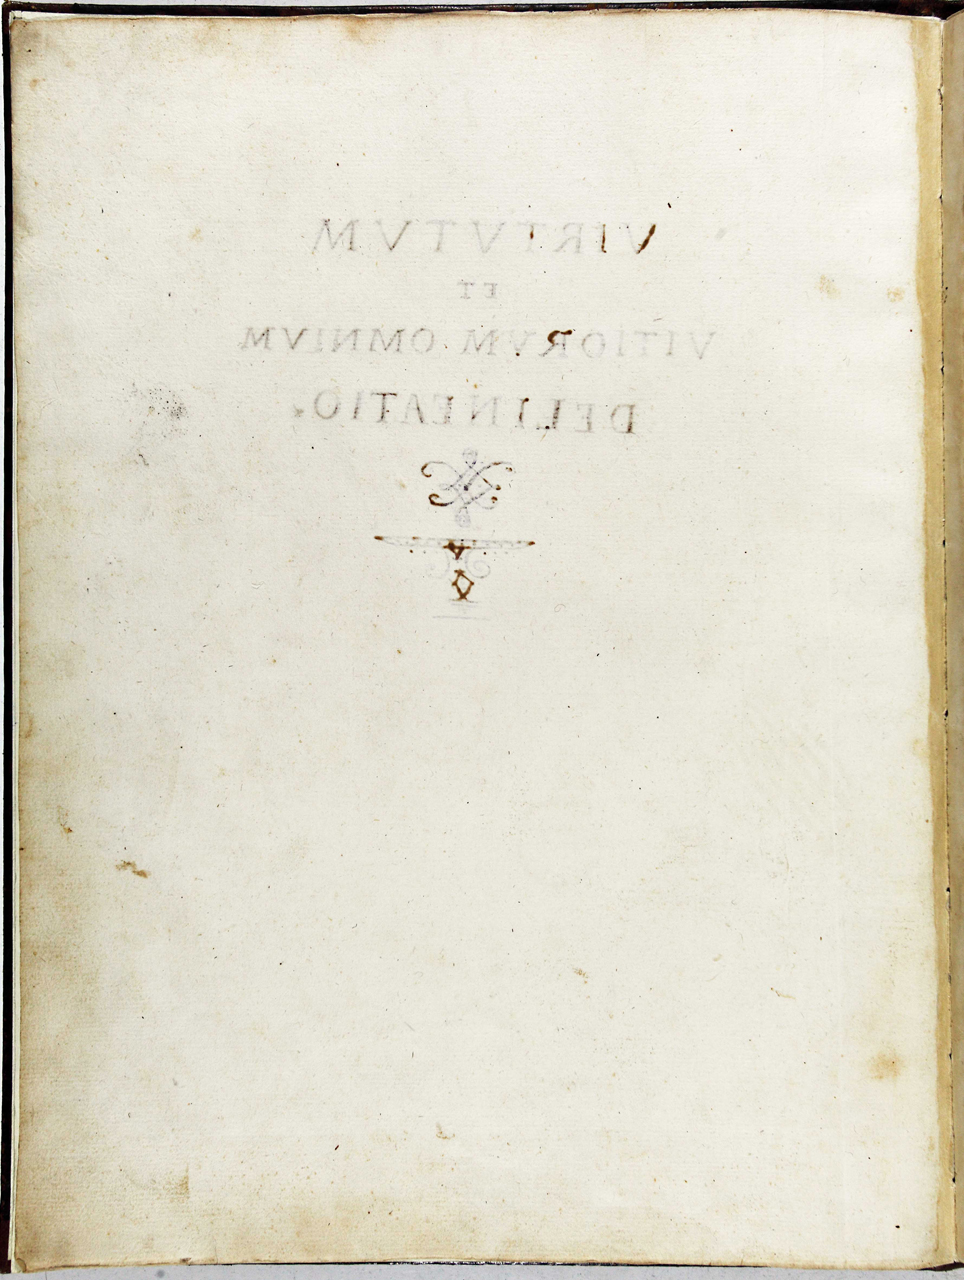 VIRTVTVM
ET
VITIORVM OMNIVM
DELINEATIO.